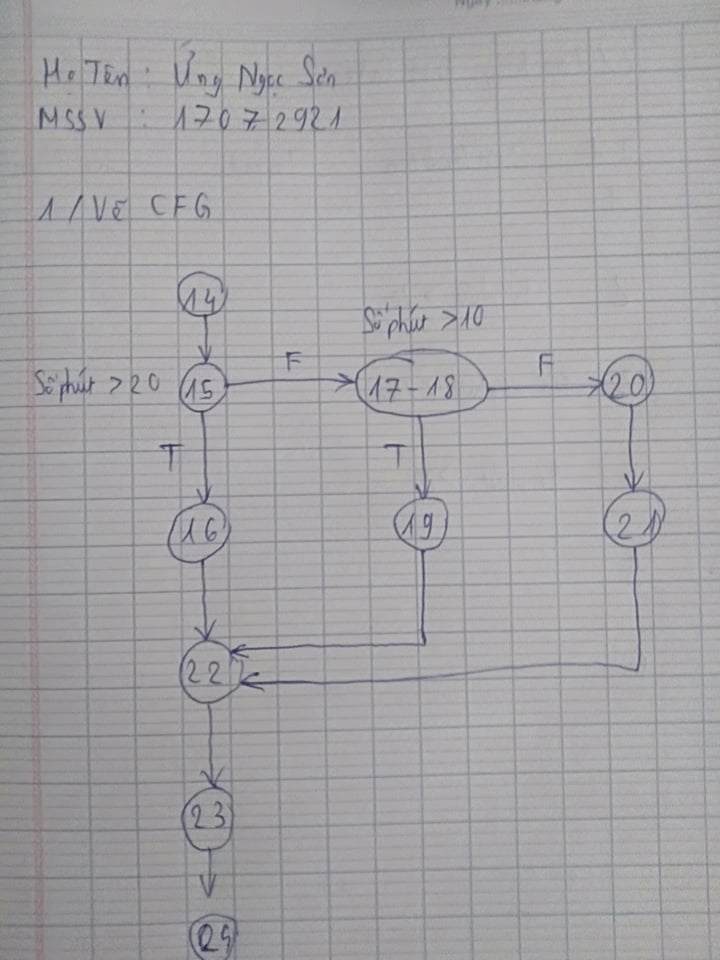 Họ Tên : Ứng Ngọc Sơn
MSSV : 17072921
1/ Vẽ CFG
14
Số phút >10
Số phút >20 15 F 17-18 F 20
T T
16 19 21
22
23